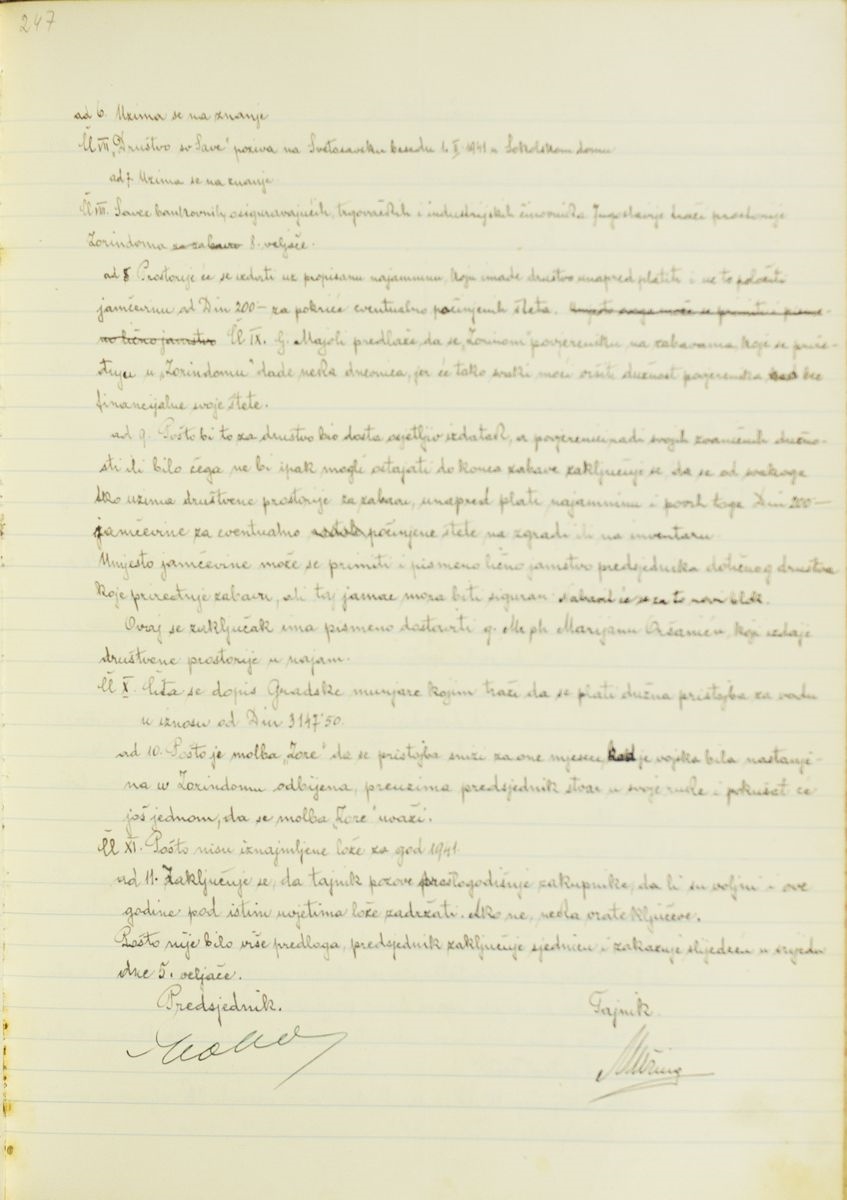 247
ad 6. Uzima se na znanje
Čl VII „Društvo sv Save" poziva na Svetosavsku besedu 1. II 1941 u Sokolskom domu
ad 7. Uzima se na znanje
Čl VIII. Savez bankovnih, osiguravajućih, trgovačkih i industrijskih činovnika Jugoslavije traži prostorije
Zorindoma za zabavu 8. veljače.
ad 8 Prostorije će se izdati uz propisanu najamninu, koju imade društvo unapred platiti i uz to položiti
jamčevinu od Din 200— za pokriće eventualno počinjenih šteta. Umjesto ovoga može se primiti i pisme-
no lično jamstvo Čl IX. G. Majoli predlaže, da se „Zorinom" povjereniku na zabavama koje se prire-
đuju u „Zorindomu" dade neka dnevnica, jer će tako svaki moći vršiti dužnost povjerenika bez
financijalne svoje štete.
ad 9. Pošto bi to za društvo bio dosta osjetljiv izdatak, a povjerenici radi svojih zvaničnih dužno-
sti ili bilo čega ne bi ipak mogli ostajati do konca zabave zaključuje se, da se od svakoga
tko uzima društvene prostorije za zabavu, unapred plati najamninu i povrh toga Din 200—
jamčevine za eventualno počinjene štete na zgradi ili na inventaru
Umjesto jamčevine može se primiti i pismeno lično jamstvo predsjednika dotičnog društva
koje priređuje zabavu, ali taj jamac mora biti siguran nabavit će se za to novi blok.
Ovaj se zaključak ima pismeno dostaviti g. Mr ph Marijanu Oršaniću, koji izdaje
društvene prostorije u najam.
Čl X. Čita se dopis Gradske munjare kojim traži da se plati dužna pristojba za vodu
u iznosu od Din 3147'50.
ad 10. Pošto je molba „Zore" da se pristojba snizi za one mjesece, kad je vojska bila nastanje-
na u Zorindomu odbijena, preuzima predsjednik stvar u svoje ruke i pokušat će
još jednom, da se molba „Zore" uvaži.
Čl XI. Pošto nisu iznajmljene lože za god 1941
ad 11. Zaključuje se, da tajnik pozove prošlogodišnje zakupnike, da li su voljni i ove
godine pod istim uvjetima lože zadržati. Ako ne, neka vrate ključeve.
Pošto nije bilo više predloga, predsjednik zaključuje sjednicu i zakazuje slijedeću u srijedu
dne 5. veljače.
Predsjednik. Tajnik